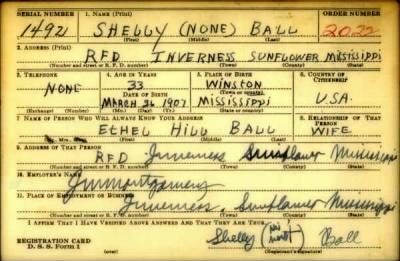 SERIAL NUMBER 1. NAME (Print) ORDER NUMBER
1491 SHELLY (NONE) BALL 2022
(First) (Middle) (Last)
2. ADDRESS (Print)
RFD INVERNESS SUNFLOWER MISSISSIPPI
(Number and street or R. F. D. number) (Town) (County) (State)
3. TELEPHONE 4. AGE IN YEARS 5. PLACE OF BIRTH 6. COUNTRY OF CITIZENSHIP
NONE 33 WINSTON
DATE OF BIRTH (Town or county)
MARCH 1907 MISSISSIPPI U.S.A.
(Exchange) (Number) (Mo.) (Day) (Yr.) (State or country)
7. NAME OF PERSON WHO WILL ALWAYS KNOW YOUR ADDRESS 8. RELATIONSHIP OF THAT PERSON
ETHEL HILL BALL WIFE
(Mr., Mrs., Miss) (First) (Middle) (Last)
9. ADDRESS OF THAT PERSON
RFD Inverness Sunflower Mississippi
(Number and street or R. F. D. number) (Town) (County) (State)
10. EMPLOYER'S NAME
Montgomery
11. PLACE OF EMPLOYMENT OR BUSINESS
Inverness, Sunflower Mississippi
(Number and street or R. F. D. number) (Town) (County) (State)
I AFFIRM THAT I HAVE VERIFIED ABOVE ANSWERS AND THAT THEY ARE TRUE.
REGISTRATION CARD
D. S. S. Form 1
Shelly Ball